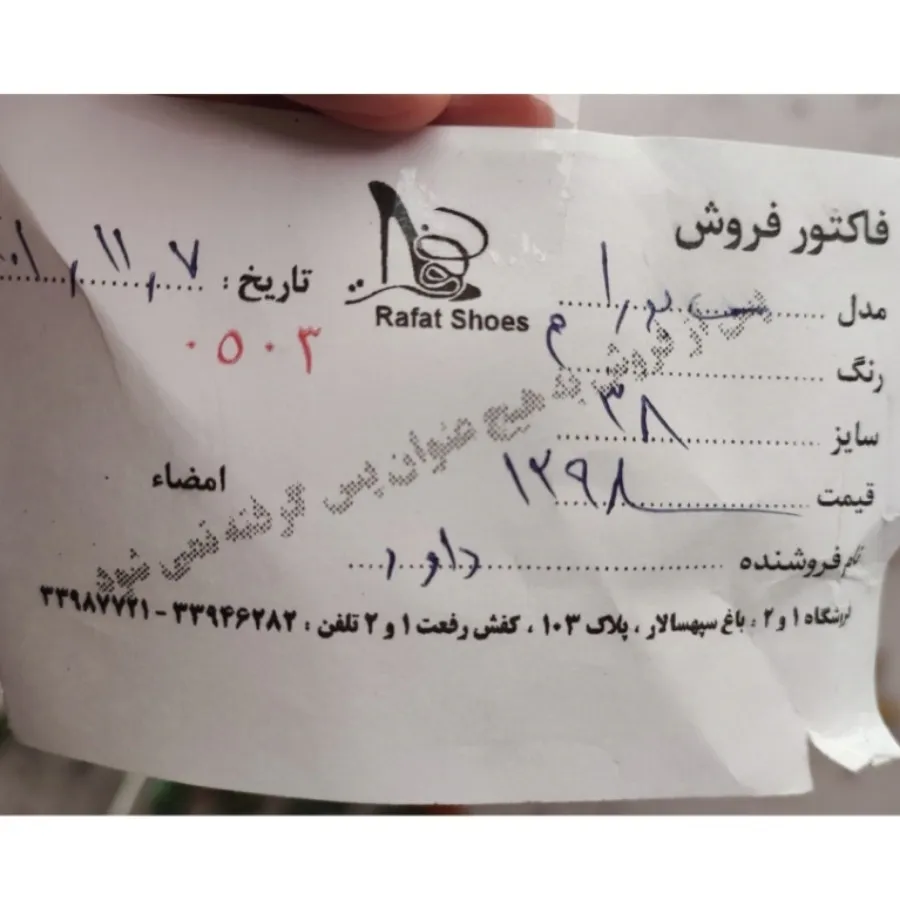 فاکتور فروش
Rafat Shoes
تاریخ : ۷ / ۱۱ / ۰۱
۰۵۰۳
مدل
رنگ
سایز ۳۸
قیمت ۱۲۹۸
امضاء
نام فروشنده داود
پس از فروش به هیچ عنوان پس گرفته نمی شود
فروشگاه ۱ و ۲ : باغ سپهسالار ، پلاک ۱۰۳ ، کفش رفعت ۱ و ۲ تلفن : ۳۳۹۴۶۲۸۲ - ۳۳۹۸۷۷۲۱